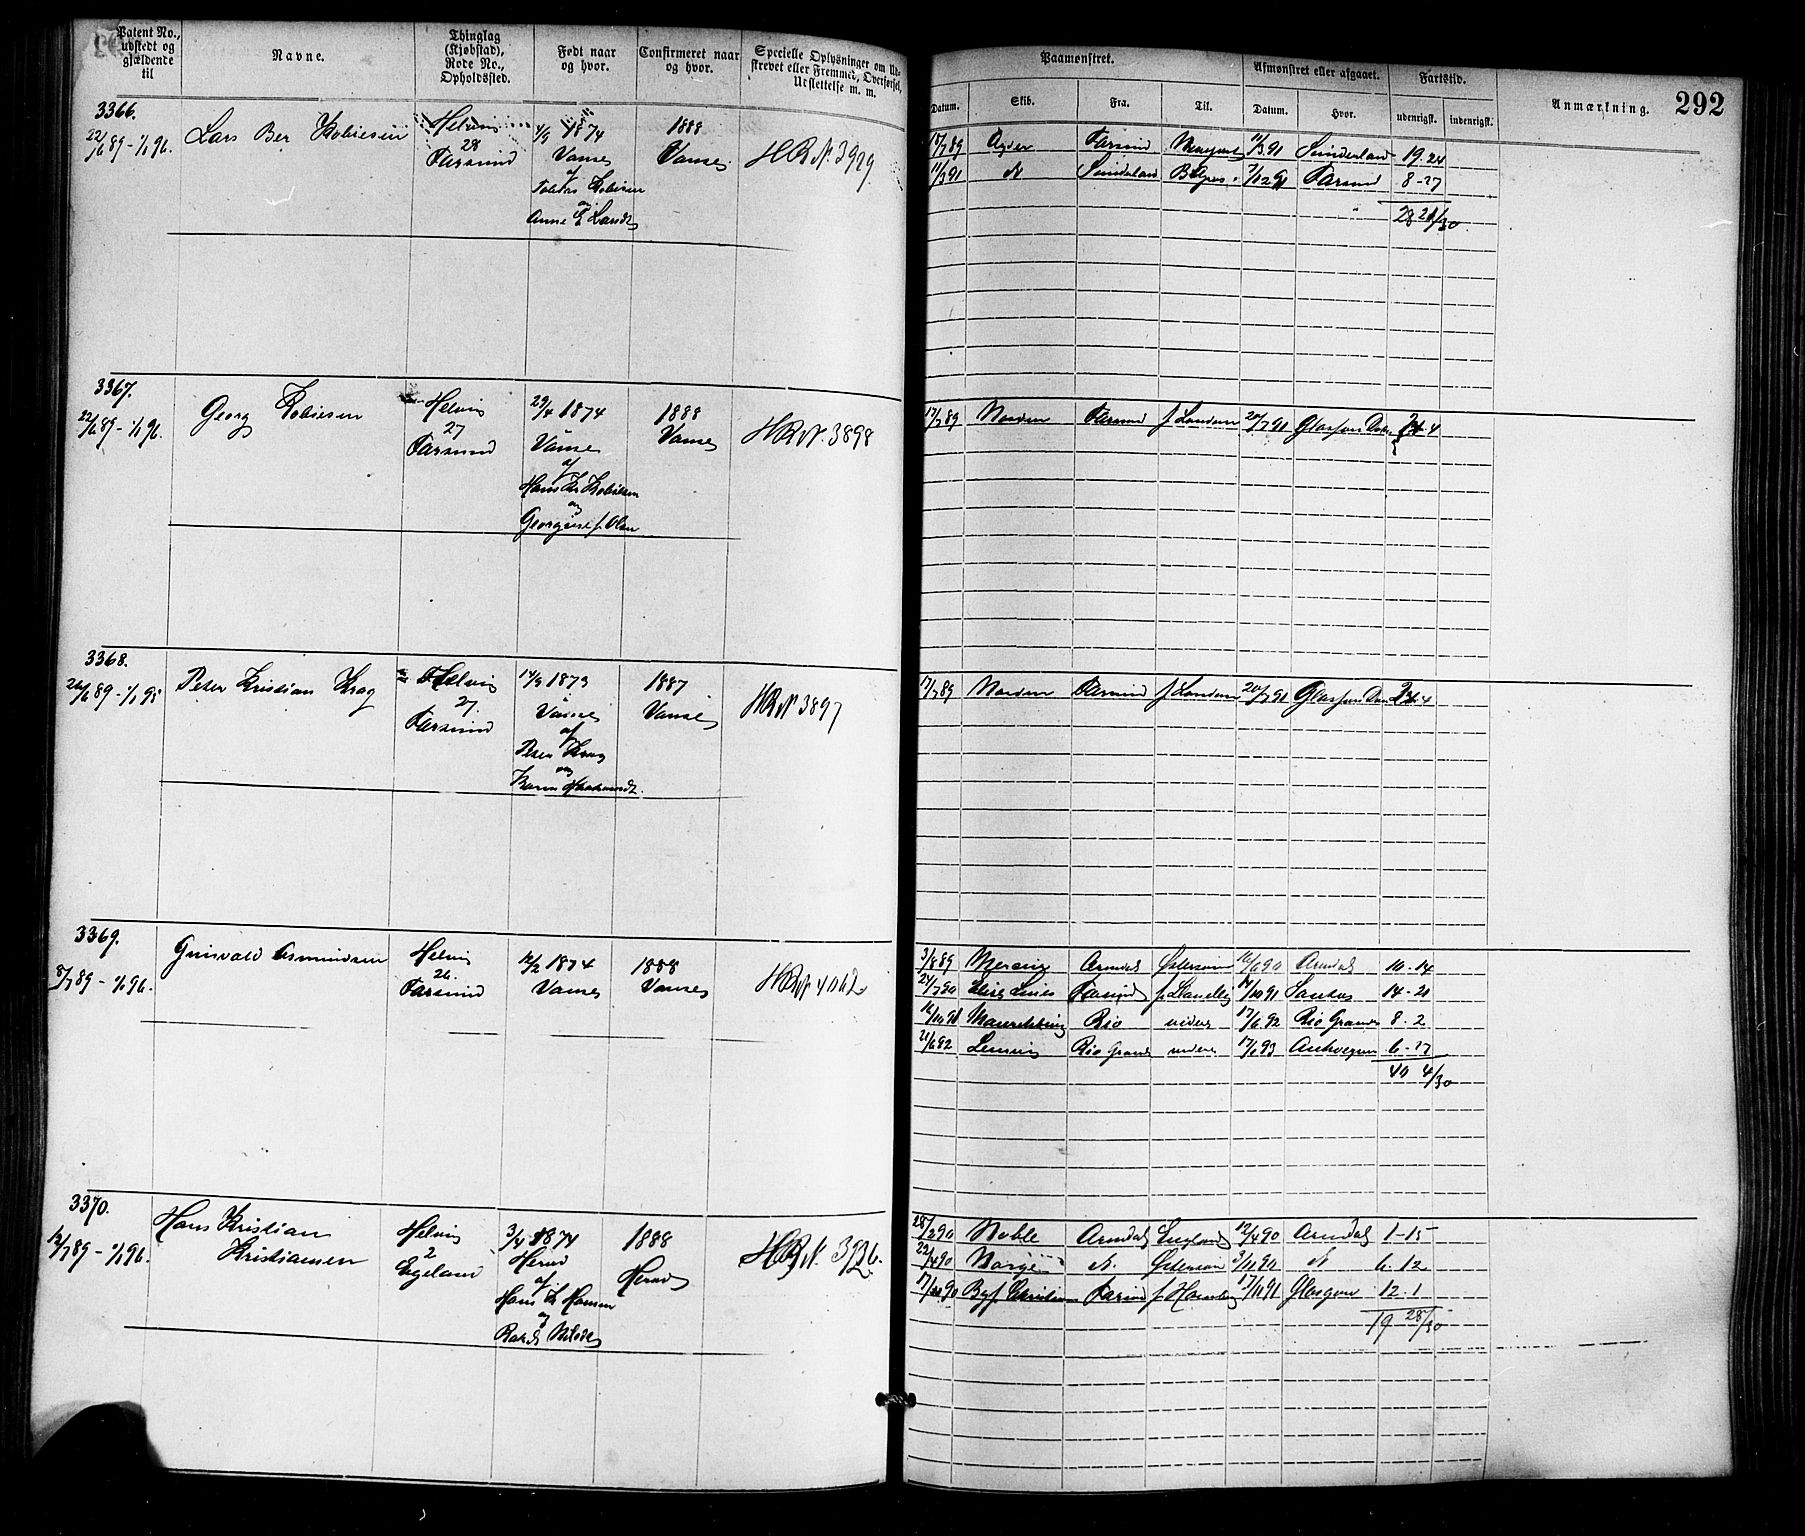 Patent No.,
udstedt og
gjældende
til
Navne.
Thinglag
(Kjøbstad),
Rode No.,
Opholdssted.
Født naar
og hvor.
Confirmeret naar
og hvor.
Specielle Oplysninger om Ud-
skrevet eller Fremmet, Overførsel,
Udslettelse m. m.
3366.
22/6 89 - 1/1 96.
Lars Ber Tobiesen
Helvig
28
Farsund
1/9 1874
Vanse
af
Tobias Tobiesen
og
Anne E
1888
Vanse
HR N. 3929
3367.
22/6 89 - 1/1 96.
Georg Tobiesen
Helvig
27
Farsund
29/4 1874
Vanse
af
Hans Kr Tobiesen
og
Georgine f. Olsen
1888
Vanse
HR N. 3898
3368.
26/6 89 - 1/1 95
Peter Kristian Krag
Helvig
27.
Farsund
14/9 1873
Vanse
af
Peter Krag
og
Karen
1887
Vanse
HR N 3897
3369.
8/7 89 - 1/1 96.
Grinvald Asmundsen
Helvig
26.
Farsund
12/2 1874
Vanse
1888
Vanse
HR N 4062
3370.
12/7 89 - 1/1 96.
Hans Kristian
Kristiansen
Helvig
2
Egeland
3/4 1874
Herad
af
Hans Kr Hansen
og
1888
Herad
HR N. 3926.
Paamønstret.
Afmønstret eller afgaaet.
Fartstid.
Anmærkning.
292
Datum.
Skib.
Fra.
Til.
Datum.
Hvor.
udenrigst.
indenrigst.
17/7 89 Agder Farsund 11/3 91 Sunderland 19. 24
11/3 91 Sunderland Farsund 8 - 27
28 21/30
17/7 89 Norden Farsund f London 20/7 91 Glasson Dock 24 4
17/7 89 Norden Farsund f London 20/7 91 Glasson Dock 24 4
3/8 89 Mercur Arendal Østersøen 16/6 90 Arendal 10 - 14
24/7 90 Farsund 14/10 91 Santos 14 - 21
16/10 91 Rio videre 17/6 92 Rio Grande 8 . 2
21/6 92 Rio Grande videre 17/1 93 Antwerpen 6 - 27
40 4/30
28/2 90 Noble Arendal England 12/4 90 Arendal 1 - 15
22/4 90 Norge Østersøen 3/11 90 6. 12
17/11 90 Farsund 17/11 91 Glasgow 12 . 1
19 28/30